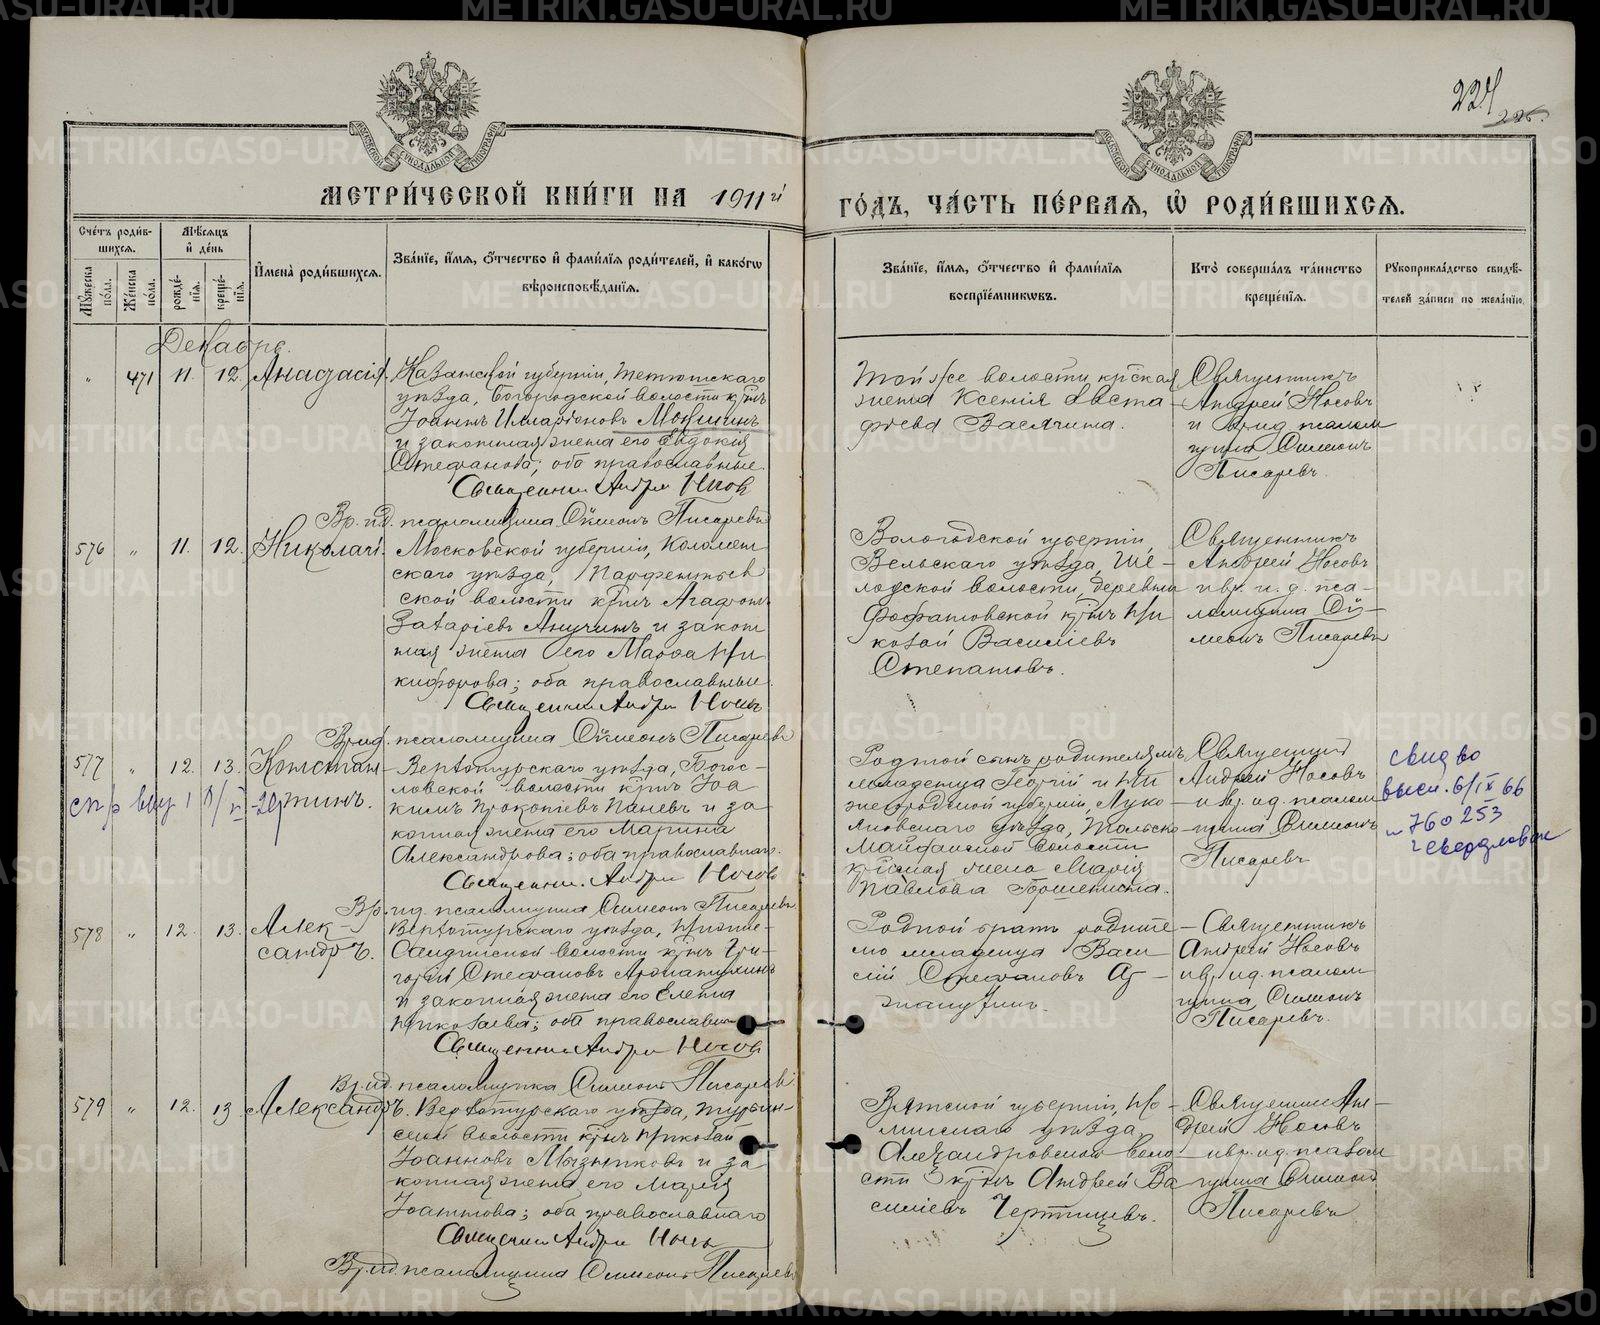 224
226.
МЕТРИ́ЧЕСКОЙ КНИ́ГИ НА 1911 й
ГО́ДЪ, ЧА́СТЬ ПЕ́РВАЯ, Ѡ РОДИ́ВШИХСЯ.
Сче́тъ роди́в-
шихся.
Мужеска по́ла.
Же́нска по́ла.
Мѣ́сяцъ и де́нь
рожде́-
нїя.
креще́-
нїя.
Имена̀ роди́вшихся.
Зва́нїе, и́мя, о́тчество и фами́лїя роди́телей, и како́гѡ
вѣроисповѣ́данїя.
Зва́нїе, и́мя, о́тчество и фами́лїя
воспрїе́мникѡвъ.
Кто̀ соверша́лъ та́инство
креще́нїя.
Рукоприкла́дство свидѣ́-
телей за́писи по жела́нїю.
Декабрь.
" 471 11. 12. Анастасія.
Казанской губерніи, Тетюшскаго
уѣзда, Богородской волости кр-нъ
Іоаннъ Илларіоновъ Мокшинъ
и законная жена его Евдокія
Стефанова; оба православные.
Священник Андрей Носов
Вр. и.д. псаломщика Симеонъ Писаревъ
Той же волости кр-ская
жена Ксенія Евста-
фіева Васячина.
Священникъ
Андрей Носовъ
и вр.и.д. псалом
щика Симеонъ
Писаревъ.
576 " 11. 12. Николай.
Московской губерніи, Коломен
скаго уѣзда, Парфентьев
ской волости кр-нъ Агафонъ
Захаріевъ Аничинъ и закон
ная жена его Марѳа Ни
кифорова; оба православные.
Священник Андрей Носов
Вр.и.д. псаломщика Симеонъ Писаревъ
Вологодской губерніи,
Вельскаго уѣзда, Ше-
лодской волости, деревни
Фофановской кр-нъ Ни
колай Василіевъ
Степановъ.
Священникъ
Андрей Носовъ
и вр. и. д. пса-
ломщика Си-
меонъ Писаревъ
577 " 12. 13. Констан-
тинъ.
Верхотурскаго уѣзда, Богос-
ловской волости кр-нъ Іоа
кимъ Прокопіевъ Паневъ и за
конная жена его Марина
Александрова; оба православнаго.
Священник Андрей Носов
Вр.и.д. псаломщика Симеонъ Писаревъ
Родной сынъ родителямъ
младенца Георгій и Ни
жегородской губерніи, Луко
яновскаго уѣзда,
Майданской волости
кр-ская жена Марія
Павлова
Священник
Андрей Носовъ
и вр. и.д. псалом
щика Симеонъ
Писаревъ
свид во
высл. 6/IX 66
760253
г Свердловск
578 " 12. 13. Алек-
сандръ.
Верхотурскаго уѣзда,
волости кр-нъ Гри-
горій Стефановъ
и законная жена его Елена
Николаева; оба православные
Священник Андрей Носов
Вр.и.д. псаломщика Симеонъ Писаревъ
Родной братъ родите-
лю младенца Васи
лій Стефановъ
Священникъ
Андрей Носовъ
и вр.и.д. псалом
щика, Симеонъ
Писаревъ.
579 " 12. 13 Александръ.
Верхотурскаго уѣзда, Турьин-
ской волости кр-нъ Николай
Іоанновъ Мызниковъ и за
конная жена его Марія
Іоаннова; оба православнаго
Священник Андрей Носов
Вр.и.д. псаломщика Симеонъ Писаревъ
Вятской губерніи, Но-
линскаго уѣзда,
Александровской воло-
сти кр-нъ Андрей Ва
силіевъ Чертищевъ.
Священник Ан-
дрей Носовъ
и вр.и.д. псалом
щика Симеонъ
Писаревъ
METRIKI.GASO-URAL.RU